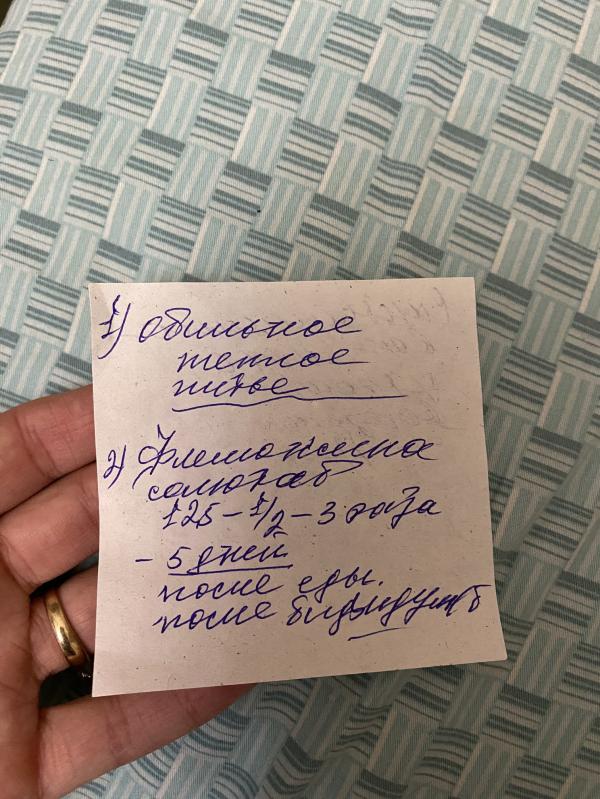 1) Обильное
теплое
питье
2) Флемоксина
солютаб
125 - 1/2 - 3 раза
- 5 дней
после еды.
после